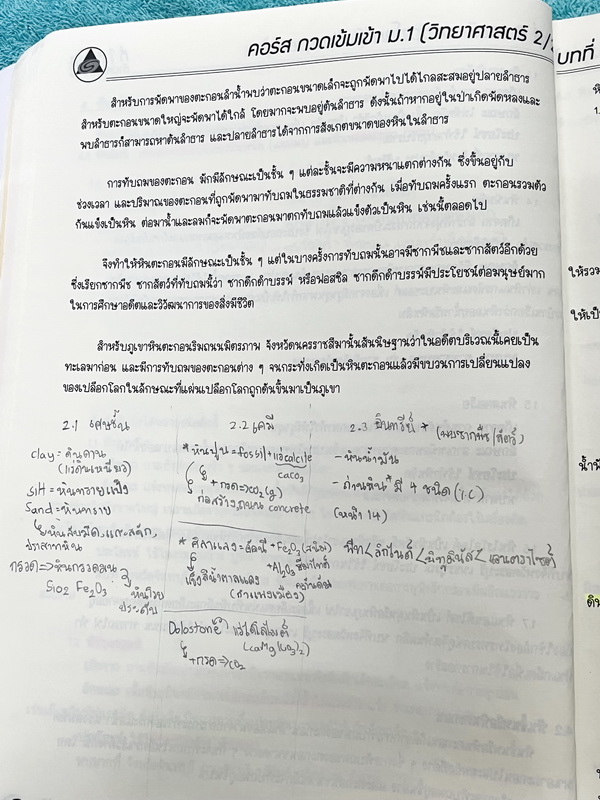 คอร์ส กวดเข้มเข้า ม.1 (วิทยาศาสตร์ 2/
บทที่
สำหรับการพัดพาของตะกอนลำน้ำพบว่าตะกอนขนาดเล็กจะถูกพัดพาไปได้ไกลสะสมอยู่ปลายลำธาร
สำหรับตะกอนขนาดใหญ่จะพัดพาได้ใกล้ โดยมากจะพบอยู่ต้นลำธาร ดังนั้นถ้าหากอยู่ในป่าเกิดพัดหลงและ
พบลำธารก็สามารถหาต้นลำธาร และปลายลำธารได้จากการสังเกตขนาดของหินในลำธาร
การทับถมของตะกอน มักมีลักษณะเป็นชั้น ๆ แต่ละชั้นจะมีความหนาแตกต่างกัน ซึ่งขึ้นอยู่กับ
ช่วงเวลา และปริมาณของตะกอนที่ถูกพัดพามาทับถมในธรรมชาติที่ต่างกัน เมื่อทับถมครั้งแรก ตะกอนรวมตัว
กันแข็งเป็นหิน ต่อมาน้ำและลมก็จะพัดพาตะกอนมาตกทับถมแล้วแข็งตัวเป็นหิน เช่นนี้ตลอดไป
จึงทำให้หินตะกอนมีลักษณะเป็นชั้น ๆ แต่ในบางครั้งการทับถมนั้นอาจมีซากพืชและซากสัตว์อีกด้วย
ซึ่งเรียกซากพืช ซากสัตว์ที่ทับถมนี้ว่า ซากดึกดำบรรพ์ หรือฟอสซิล ซากดึกดำบรรพ์มีประโยชน์ต่อมนุษย์มาก
ในการศึกษาอดีตและวิวัฒนาการของสิ่งมีชีวิต
สำหรับภูเขาหินตะกอนริมถนนมิตรภาพ จังหวัดนครราชสีมานั้นสันนิษฐานว่าในอดีตบริเวณนี้เคยเป็น
ทะเลมาก่อน และมีการทับถมของตะกอนต่าง ๆ จนกระทั่งเกิดเป็นหินตะกอนแล้วมีขบวนการเปลี่ยนแปลง
ของเปลือกโลกในลักษณะที่แผ่นเปลือกโลกถูกดันขึ้นมาเป็นภูเขา
2.1 เศษชิ้น
clay = หินดาน
silt = หินทรายแป้ง
Sand = หินทราย
กรวด => หินกรวดมน
SiO2 Fe2O3
2.2 เคมี
* หินปูน = fossil + แร่calcite
CaCO3
+ กรด => CO2 (g)
ก่อสร้าง, ถนน concrete
+ Fe2O3
+ Al2O3
(กำแพงเมือง)
Dolostone แร่โดโลไมต์
+ กรด => CO2
2.3 อินทรีย์ + (พบซากพืช/สัตว์)
- หินน้ำมัน
- ถ่านหิน * มี 4 ชนิด
(หน้า 14)
พีท < ลิกไนต์ < บิทูมินัส < แอนทราไซต์
ให้รวม
ให้เป็